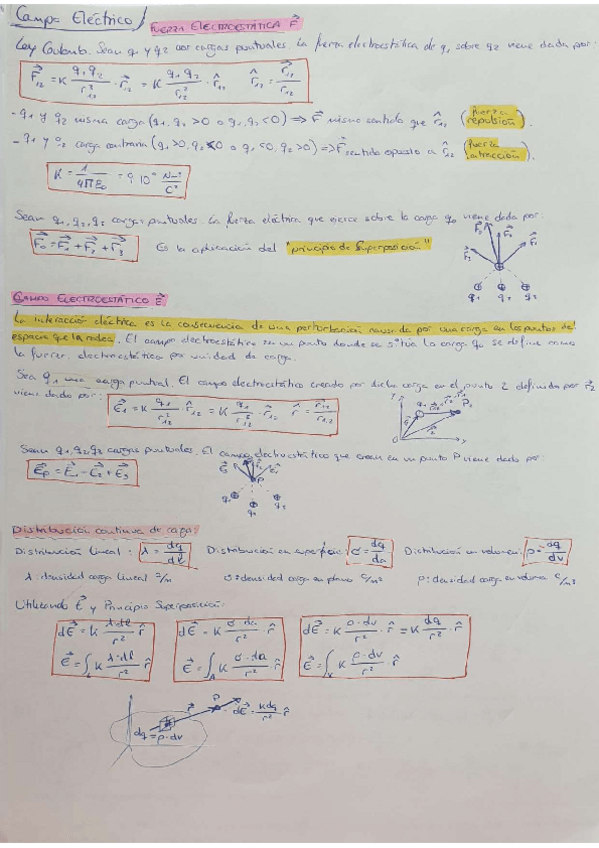 Campo Eléctrico / FUERZA ELECTROESTÁTICA F⃗
Ley Coulomb. Sean q1 y q2 dos cargas puntuales. La fuerza electroestática de q1 sobre q2 viene dada por:
F⃗12 = K q1 q2 / r²12 · r̂12 = K q1 q2 / r²12 · r̂12 r̂12 = r⃗12 / r12
- q1 y q2 misma carga (q1, q2 > 0 o q1, q2 < 0) => F⃗ mismo sentido que r̂12 (fuerza repulsión).
- q1 y q2 carga contraria (q1 > 0, q2 < 0 o q1 < 0, q2 > 0) => F⃗ sentido opuesto a r̂12 (fuerza atracción).
K = 1 / 4πε0 = 9·10⁹ N·m² / C²
Sean q1, q2, q3 cargas puntuales. La fuerza eléctrica que ejerce sobre la carga q0 viene dada por:
F⃗0 = F⃗1 + F⃗2 + F⃗3 Es la aplicación del "principio de Superposición"
CAMPO ELECTROESTÁTICO E⃗
La interacción eléctrica es la consecuencia de una perturbación causada por una carga en los puntos del
espacio que la rodea. El campo electroestático en un punto donde se sitúa la carga q0 se define como
la fuerza electroestática por unidad de carga.
Sea q1 una carga puntual. El campo electroestático creado por dicha carga en el punto 2 definida por r⃗2
viene dado por: E⃗1 = K q1 / r²12 · r̂12 = K q1 / r²12 · r̂12 r̂ = r⃗12 / r12
Sean q1, q2, q3 cargas puntuales. El campo electroestático que crean en un punto P viene dado por:
E⃗p = E⃗1 - E⃗2 + E⃗3
q1 q2
Distribución continua de carga:
Distribución Lineal: λ = dq / dl Distribución en superficie: σ = dq / da Distribución en volumen: ρ = dq / dv
λ: densidad carga lineal C/m σ: densidad carga en plano C/m² ρ: densidad carga en volumen C/m³
Utilizando E⃗ y Principio Superposición:
dE⃗ = K λ·dl / r² · r̂ dE⃗ = K σ·da / r² · r̂ dE⃗ = K ρ·dv / r² · r̂ = K dq / r² · r̂
E⃗ = ∫ K λ·dl / r² · r̂ E⃗ = ∫A K σ·da / r² · r̂ E⃗ = ∫ K ρ·dv / r² · r̂
r⃗ P dE⃗ = K dq / r² r̂
dq = ρ·dv